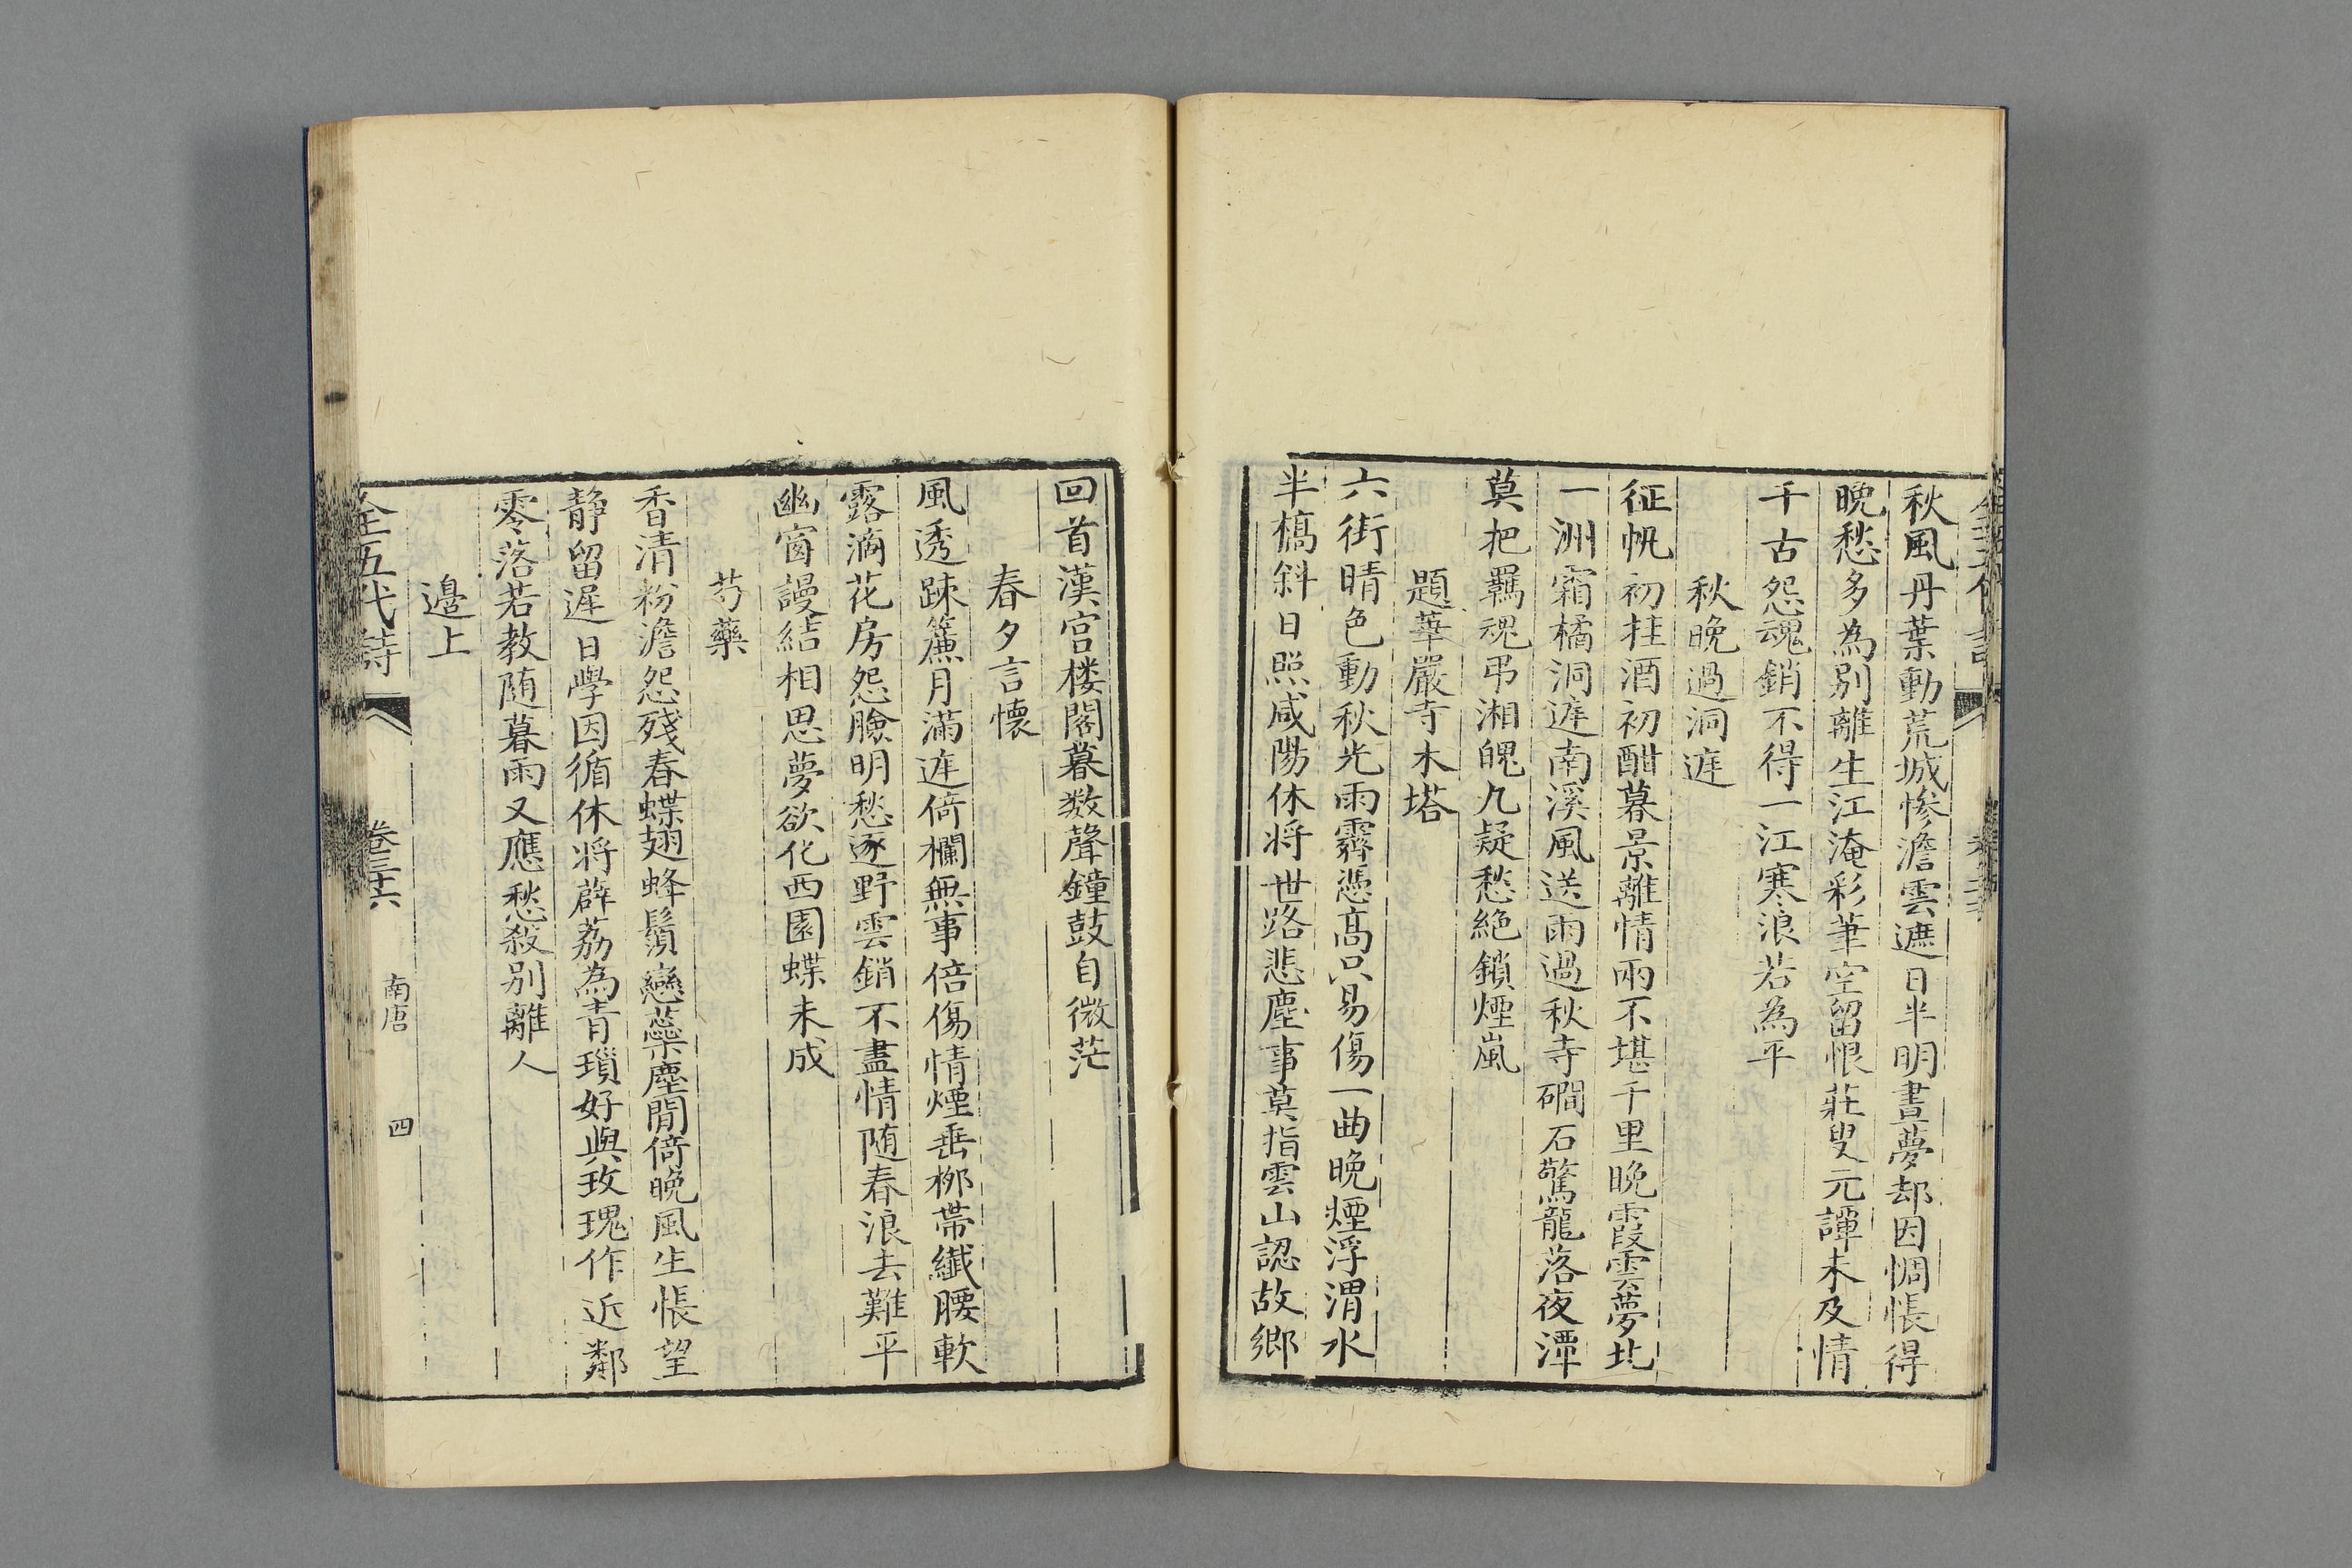 秋風丹葉動荒城慘澹雲遮日半明晝夢却因惆悵得
晚愁多為別離生江淹彩筆空留恨莊叟元譚未及情
千古怨魂銷不得一江寒浪若為平
秋晚過洞庭
征帆初挂酒初酣暮景離情兩不堪千里晚霞雲夢北
一洲霜橘洞庭南溪風送雨過秋寺礀石驚龍落夜潭
莫把羈魂弔湘魄九疑愁絕鎖煙嵐
題華嚴寺木塔
六街晴色動秋光雨霽憑高只易傷一曲晚煙浮渭水
半橋斜日照咸陽休将世路悲塵事莫指雲山認故鄉
回首漢宮楼閣暮数聲鐘鼓自微茫
春夕言懷
風透踈簾月滿庭倚欄無事倍傷情煙垂柳帶纖腰軟
露滴花房怨臉明愁逐野雲銷不盡情随春浪去難平
幽窗謾結相思夢欲化西園蝶未成
芍藥
香清粉澹怨殘春蝶翅蜂鬚戀蘂塵閒倚晚風生悵望
静留遲日學因循休将薜荔為青瑣好與玫瑰作近鄰
零落若教随暮雨又應愁殺別離人
邉上
全五代詩
卷三十六
南唐
四